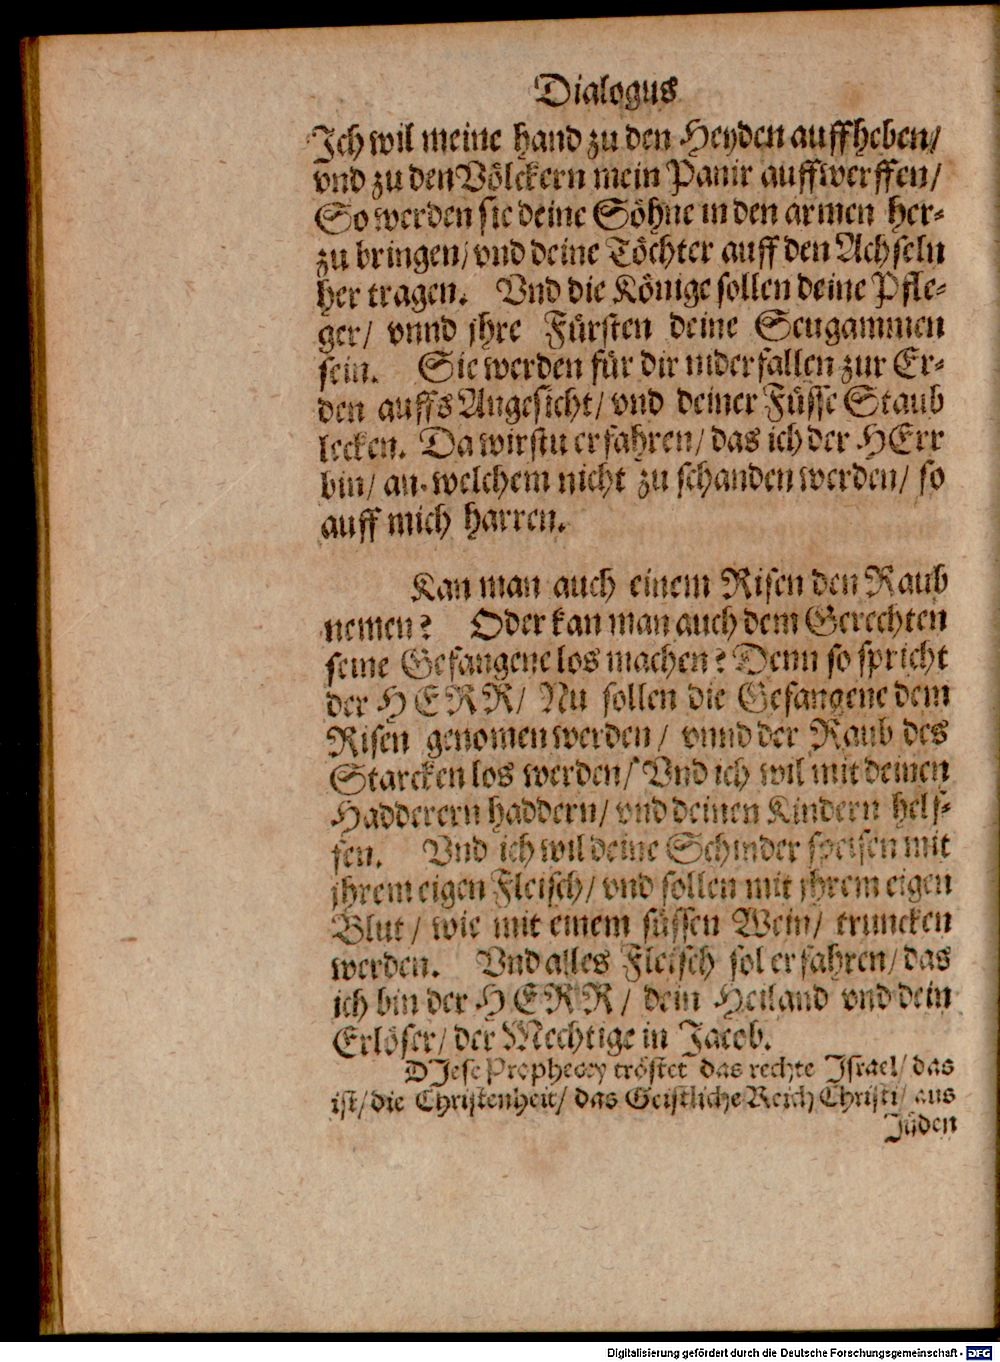 Dialogus
Ich wil meine hand zu den Heyden auffheben/
vnd zu den Völckern mein Panir auffwerffen/
So werden sie deine Söhne in den armen her-
zu bringen/ vnd deine Töchter auff den Achseln
her tragen. Vnd die Könige sollen deine Pfle-
ger/ vnnd jhre Fürsten deine Seugammen
sein. Sie werden für dir niderfallen zur Er-
den auffs Angesicht/ vnd deiner Füsse Staub
lecken. Da wirstu erfahren/ das ich der HErr
bin/ an welchem nicht zu schanden werden/ so
auff mich harren.
Kan man auch einem Risen den Raub
nemen? Oder kan man auch dem Gerechten
seine Gefangene los machen? Denn so spricht
der HERR/ Nu sollen die Gefangene dem
Risen genomen werden/ vnnd der Raub des
Starcken los werden/ Vnd ich wil mit deinen
Hadderern haddern/ vnd deinen Kindern helf-
fen. Vnd ich wil deine Schinder speisen mit
jhrem eigen Fleisch/ vnd sollen mit jhrem eigen
Blut/ wie mit einem süssen Wein/ truncken
werden. Vnd alles Fleisch sol erfahren/ das
ich bin der HERR/ dein Heiland vnd dein
Erlöser/ der Mechtige in Jacob.
DJese Prophecey tröstet das rechte Jsrael/ das
ist/ die Christenheit/ das Geistliche Reich Christi/ aus
Jüden
Digitalisierung gefördert durch die Deutsche Forschungsgemeinschaft - DFG